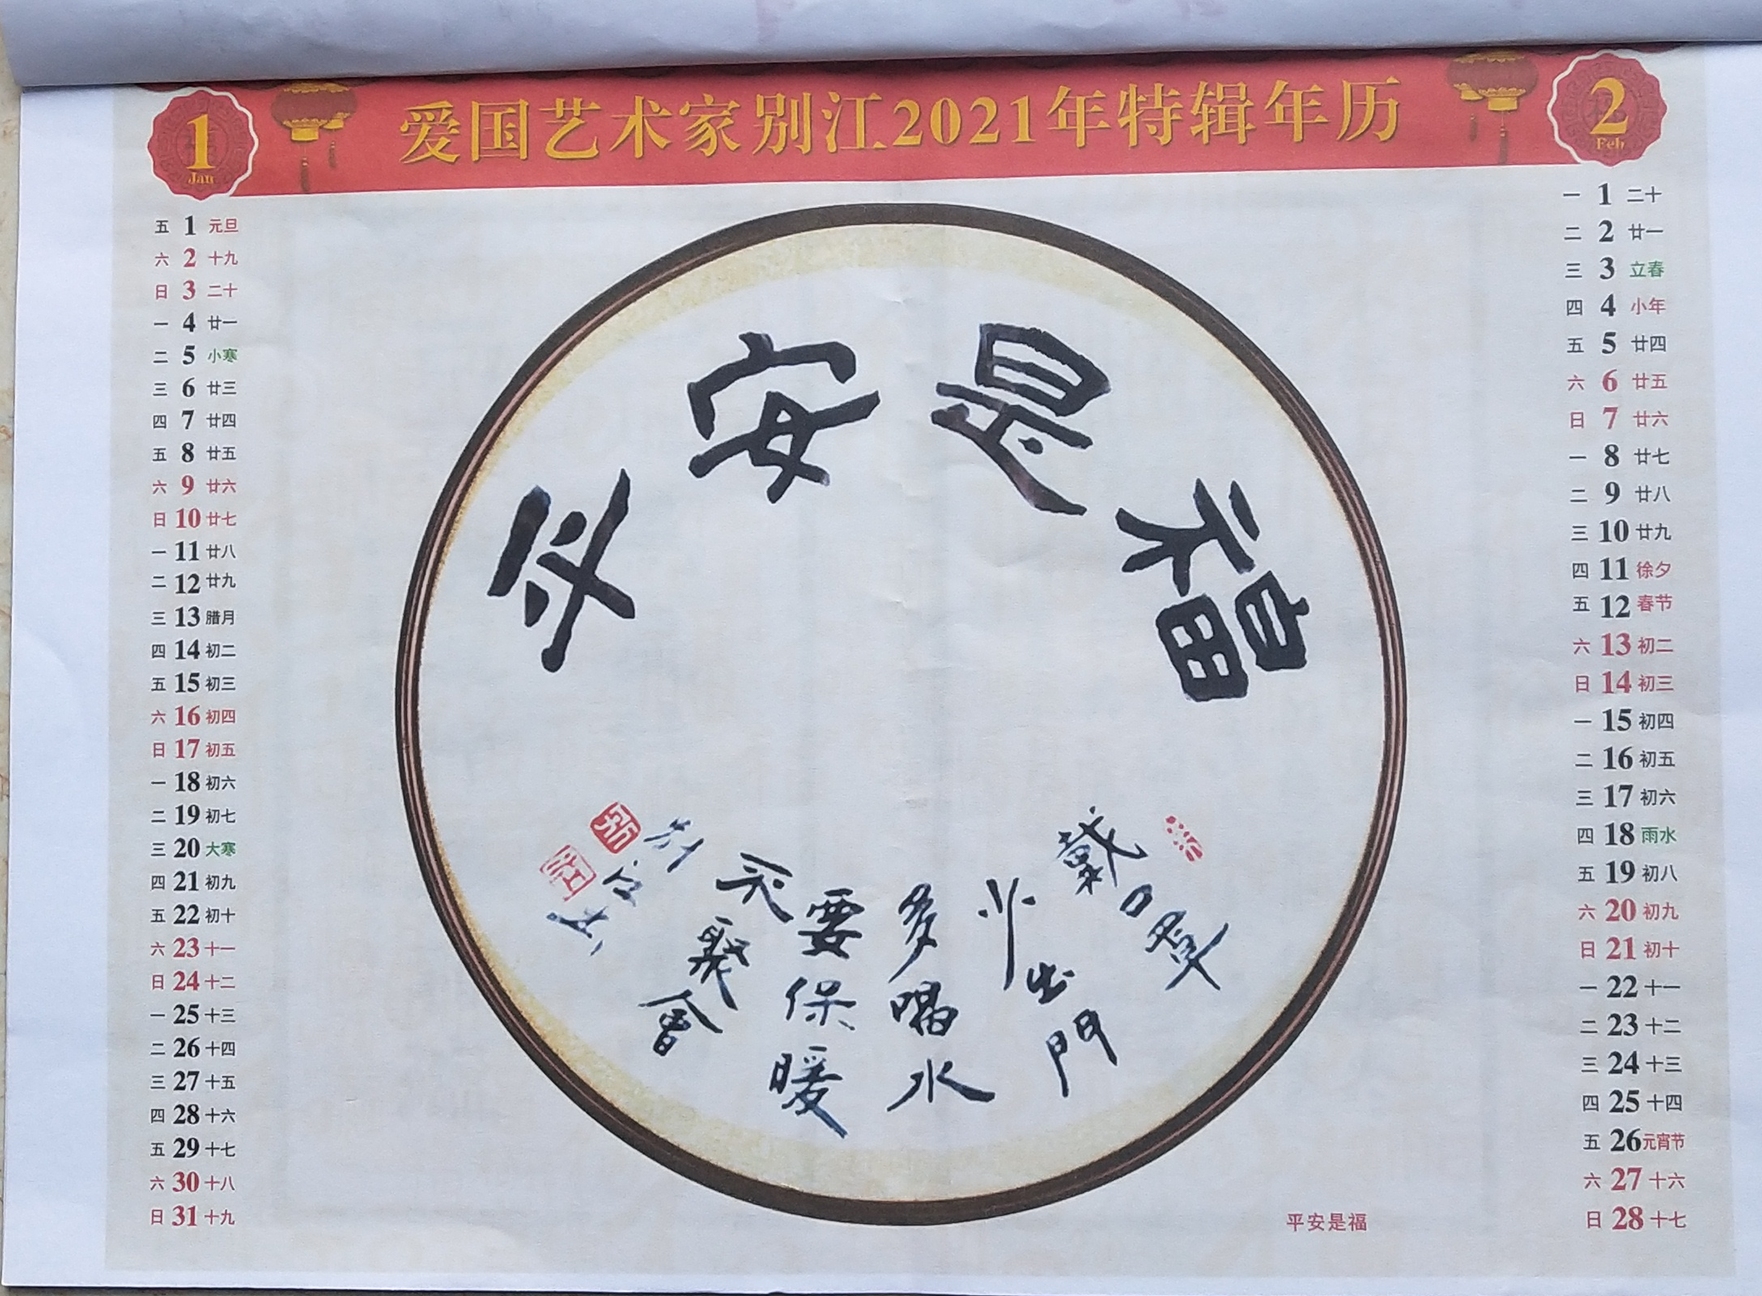 爱国艺术家别江2021年特辑年历
1
Jan
五 1 元旦
六 2 十九
日 3 二十
一 4 廿一
二 5 小寒
三 6 廿三
四 7 廿四
五 8 廿五
六 9 廿六
日 10 廿七
一 11 廿八
二 12 廿九
三 13 腊月
四 14 初二
五 15 初三
六 16 初四
日 17 初五
一 18 初六
二 19 初七
三 20 大寒
四 21 初九
五 22 初十
六 23 十一
日 24 十二
一 25 十三
二 26 十四
三 27 十五
四 28 十六
五 29 十七
六 30 十八
日 31 十九
平安是福
戴口罩
少出門
多喝水
要保暖
不聚會
别江书
别
江
平安是福
2
Feb
一 1 二十
二 2 廿一
三 3 立春
四 4 小年
五 5 廿四
六 6 廿五
日 7 廿六
一 8 廿七
二 9 廿八
三 10 廿九
四 11 徐夕
五 12 春节
六 13 初二
日 14 初三
一 15 初四
二 16 初五
三 17 初六
四 18 雨水
五 19 初八
六 20 初九
日 21 初十
一 22 十一
二 23 十二
三 24 十三
四 25 十四
五 26 元宵节
六 27 十六
日 28 十七